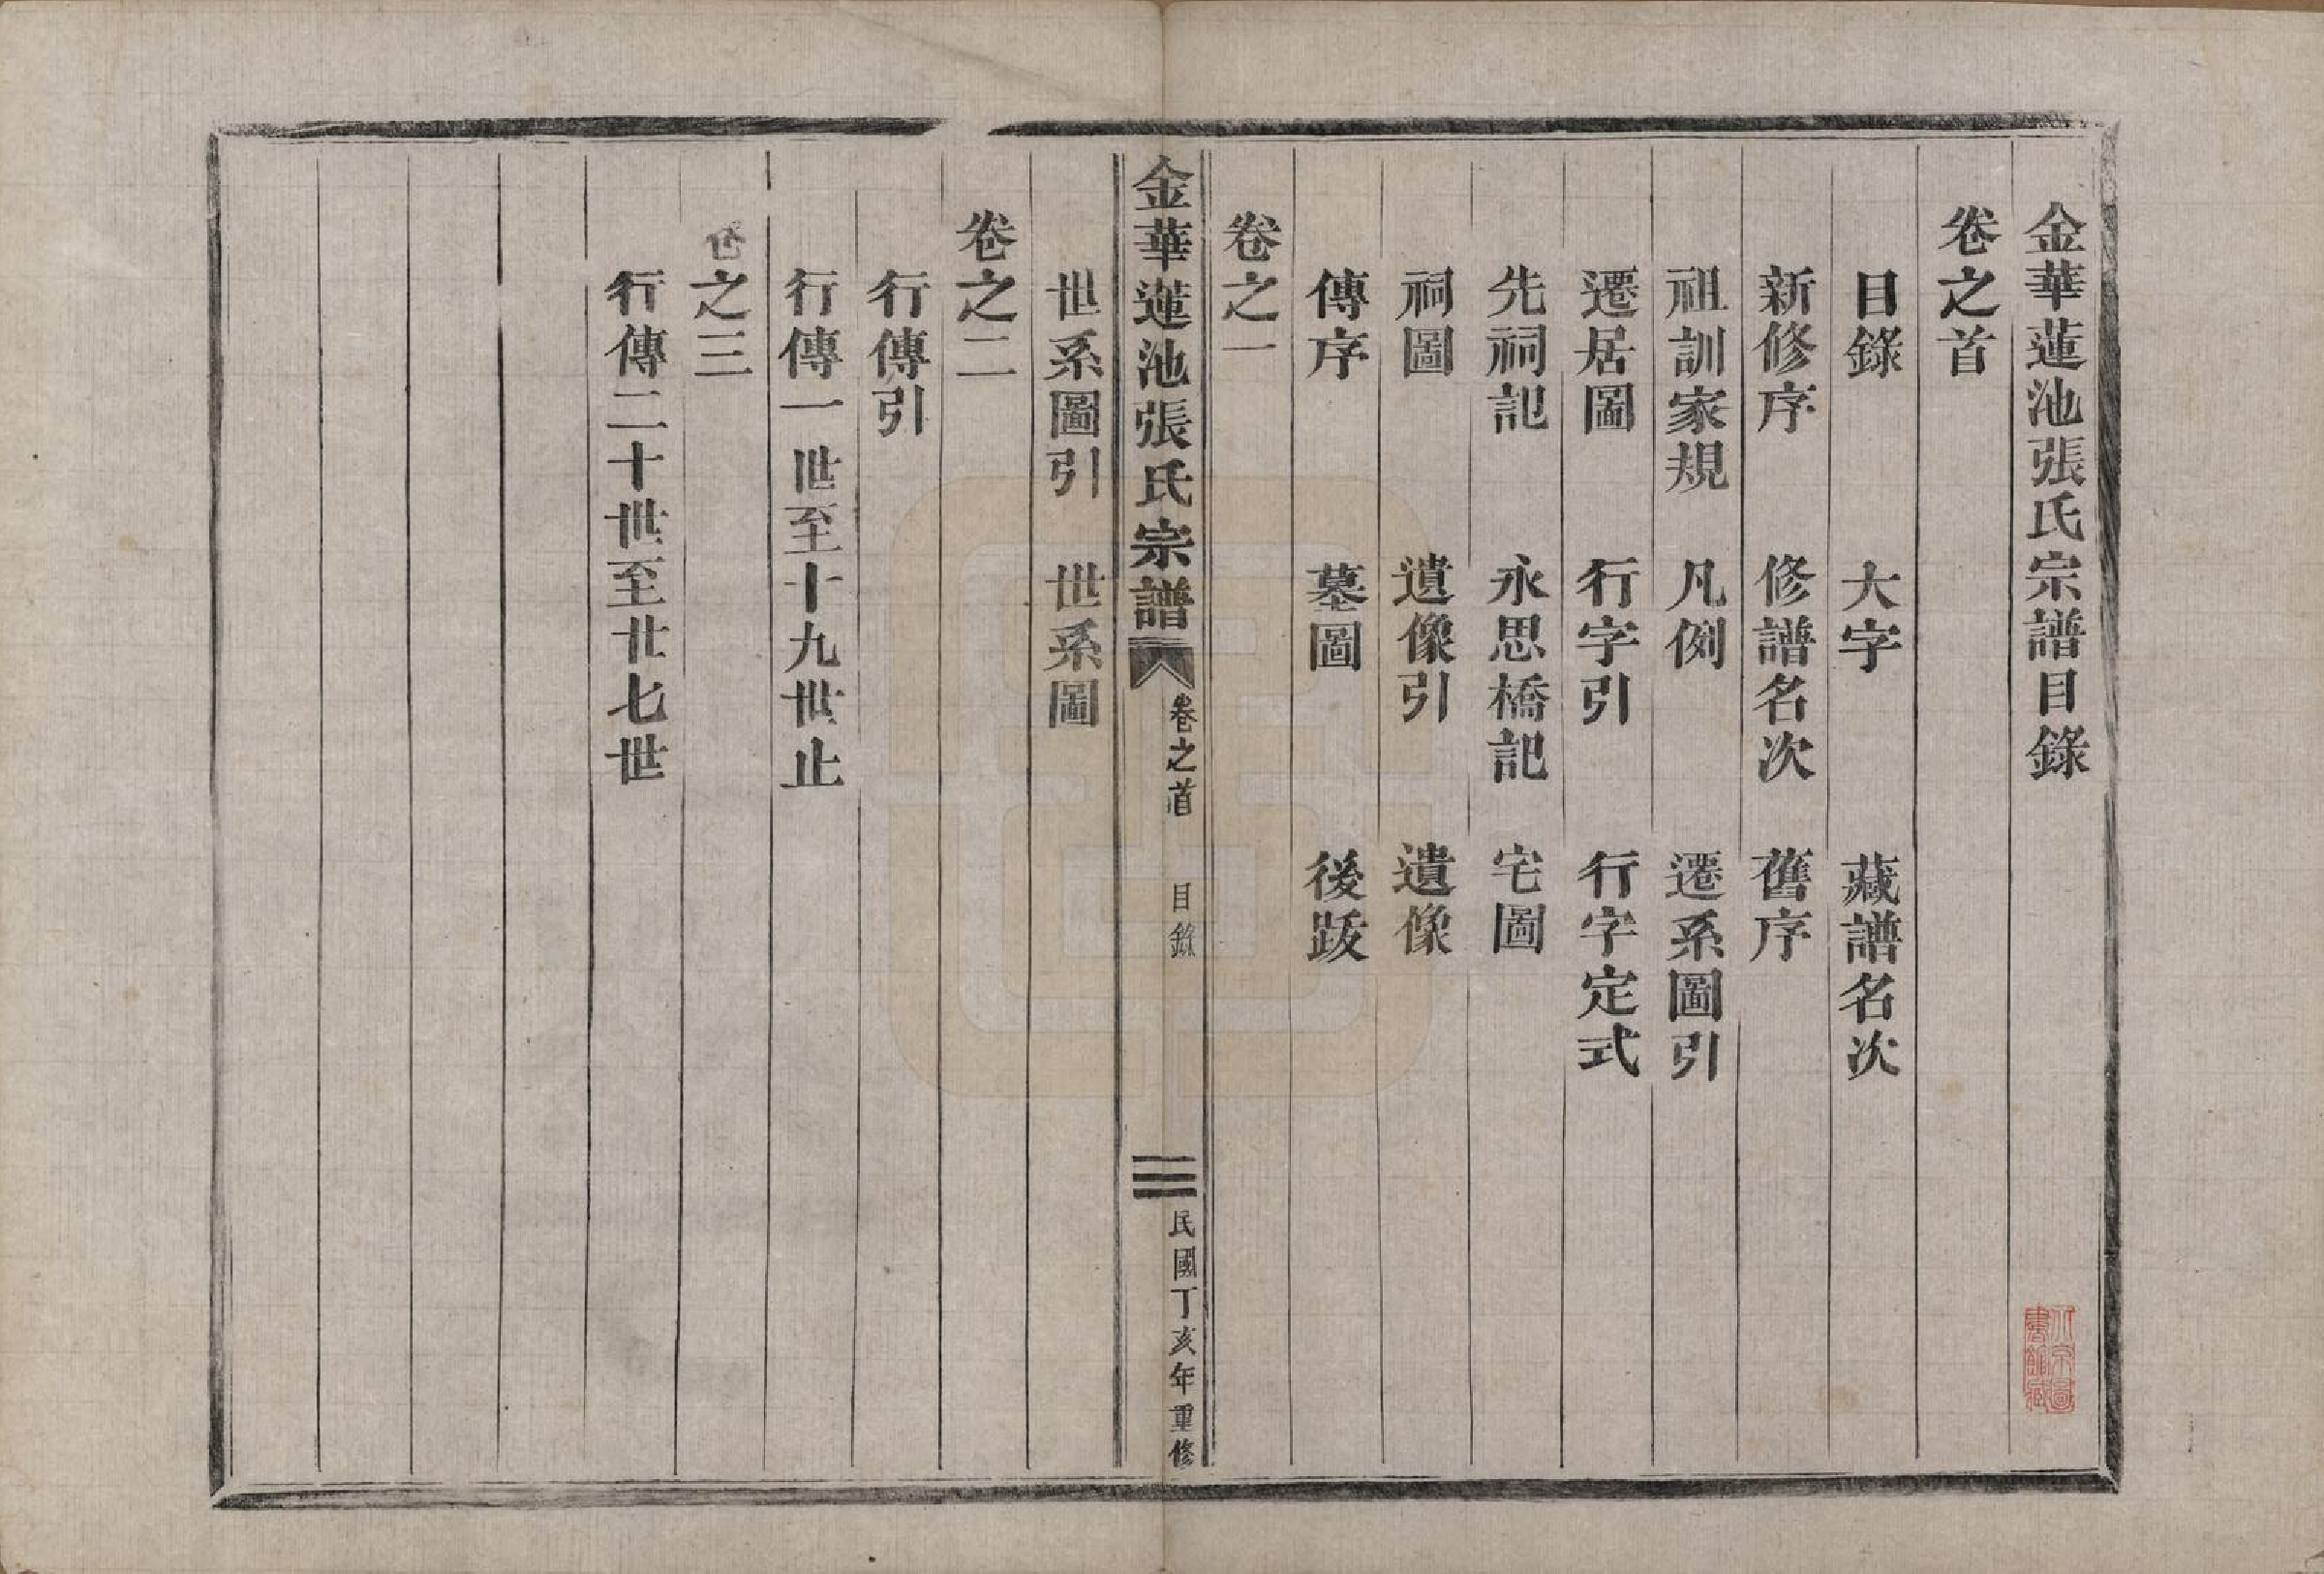 金華蓮池張氏宗譜目錄
卷之首
目錄　大字　藏譜名次
新修序　修譜名次　舊序
祖訓家規　凡例　遷系圖引
遷居圖　行字引　行字定式
先祠記　永思橋記　宅圖
祠圖　遺像引　遺像
傳序　墓圖　後跋
卷之一
金華蓮池張氏宗譜　卷之首　目錄　民國丁亥年重修
世系圖引　世系圖
卷之二
行傳引
行傳一世至十九世止
卷之三
行傳二十世至廿七世
北京圖
書館藏